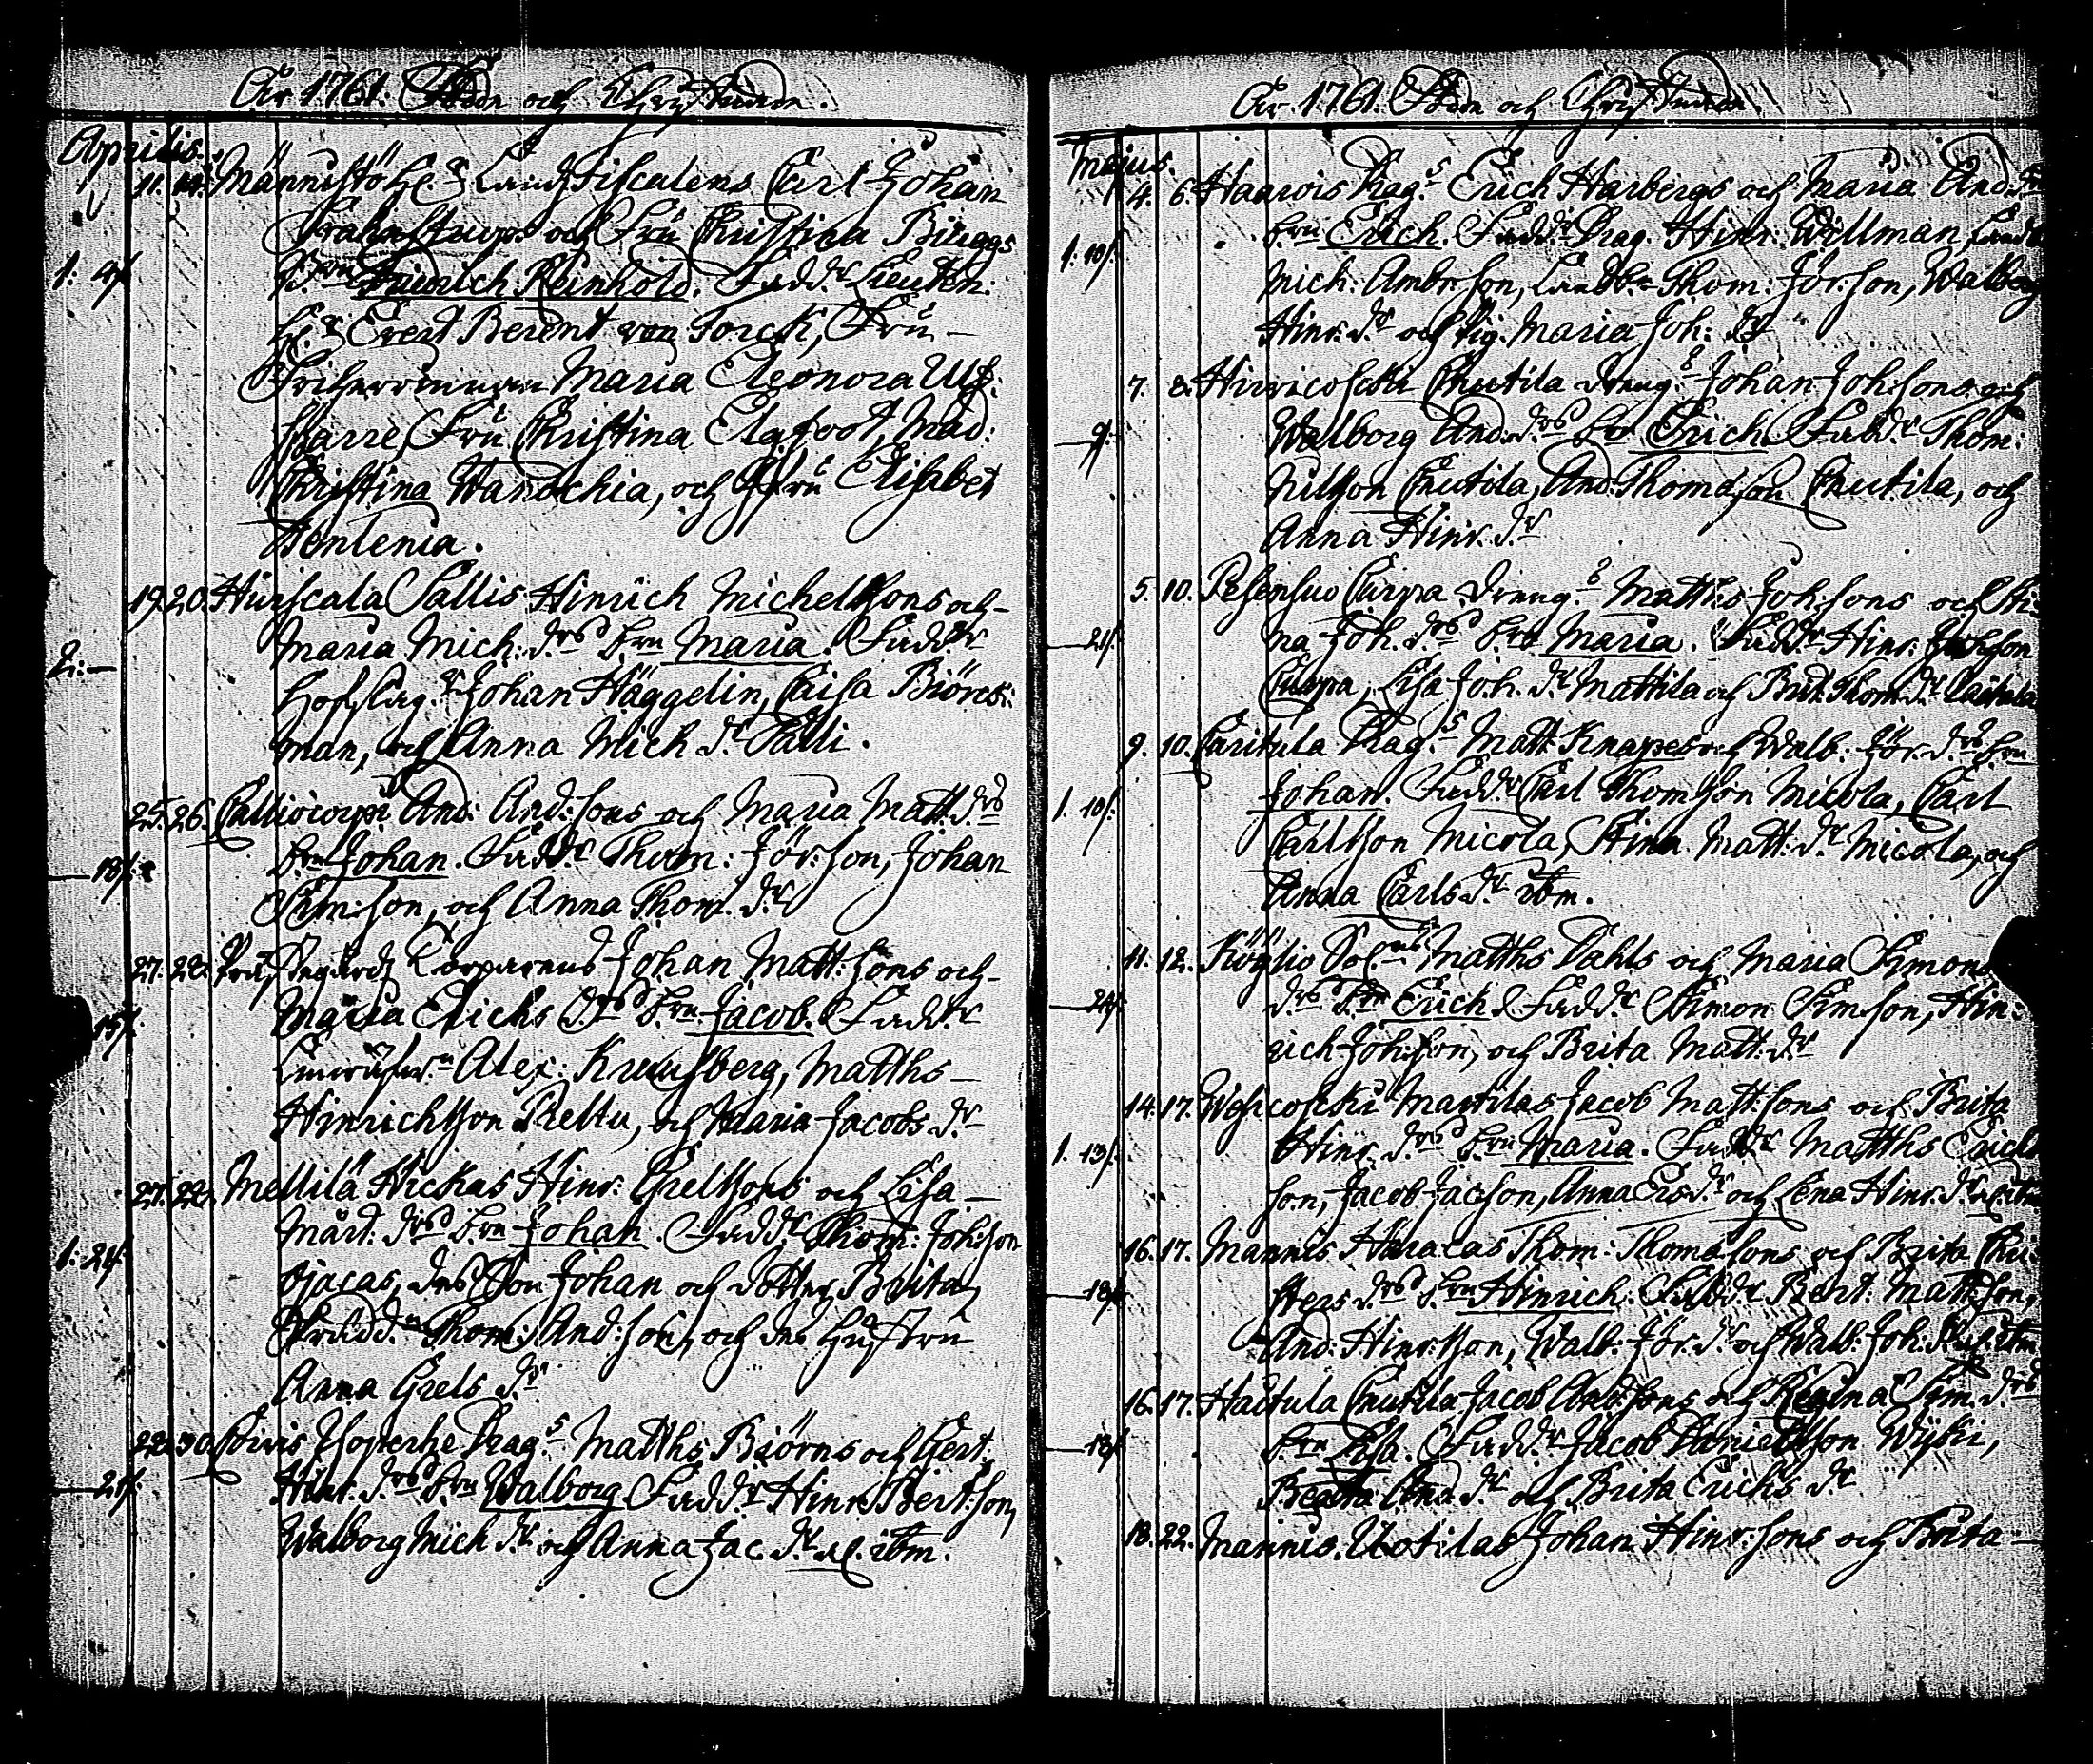 År 1761. Födde och Christnade.
Aprilis.
11. 14. Männistö H:r Landsfiscalens Carl Johan
och Fru Christina Biuggs
1: 4/. B:rn Friedrich Reinhold. Fadd:r Lieuten:
H:r Evert Berent von Torck, Fru
Friherrinnan Maria Eleonora Ulf:
sparre, Fru Christina Elgfoot, Mad:
Christina Wanochia, och Jgfru Elisabet
19. 20. Hurscala Sallis Hinrich Michelssons och
2: — Maria Mich: d:rs b:rn Maria. Fadd:r
Johan Häggelin, Caisa Biörck:
man, och Anna Mich d:r Salli.
25. 26. Calliocorpi And: And:sons och Maria Matt. d:rs
— 18/: b:rn Johan. Fadd:r Thom: Jör:son, Johan
Sim:son, och Anna Thom. d:r
27. 28. Prästegårds Torparens Johan Matt:sons och
15/. Maria Erichs d:rs b:rn Jacob. Fadd:r
Alex: Kreusberg, Matths
Hinrichsson Peltu, och Maria Jacobs d:r
27. 28. Mellilä Hickas Hinr: Grelssons och Lisa
Mårt: d:rs b:rn Johan. Fadd:r Thom: Joh:son
1: 24/. Ojacas, des Son Johan och dotter Brita,
Thom: And:son, och des Hustru
Anna Grels d:r
28. 30. Drag:s Matths Biörns och Gert.
— 21/. Hinr. d:rs b:rn Walborg. Fadd:r Hinr. Bert:son,
Walborg Mich d:r och Anna Jac. d:r al. ibm.
År. 1761. Födde och Christnade.
Majus.
4. 6. Haarois Drag:s Erich Harbergs och Maria And.
1: 10/. b:rn Erich. Fadd:r Drag. Hinr: Willman,
Mich: Ambr:son, Thom: Jör:son, Walborg
Hinr. d:r och Pig. Maria Joh: d:r
7. 8. Cnutila dreng:s Johan Joh:sons och
— 9/. Walborg And. d:rs b:rn Erich. Fadd:r Thom:
Nilsson Cnutila, And: Thomasson Cnutila, och
Anna Hinr. d:r
5. 10. Pesensuo Curpa dreng:s Matths Joh:sons och Sti:
— 21/. na Joh. d:rs b:rn Maria. Fadd:r Hinr: Joh:son
Curpa, Lisa Joh. d:r Mattila och Brit. Thom. d:r
9. 10. Caritula Drag:s Matt. Knapes och Walb: Jör. d:rs b:rn
1. 10/: Johan. Fadd:r Carl Thomsson Micola, Carl
Carlsson Micola, Stina Matt: d:r Micola, och
Anna Carls d:r ibm.
11. 12. Köyliö Matths Dahls och Maria Simons
— 24/. d:rs b:rn Erich. Fadd:r Simon Sim:son, Hin:
rich Joh:son, och Brita Matt: d:r
14. 17. Mattilas Jacob Matt:sons och Brita
1. 13/. Hinr. d:rs b:rn Maria. Fadd:r Matths Erichs
son, Jacob Jacson, Anna Ers d:r och Lena Hinr. d:r al. ibm
16. 17. Mannis Haracas Thom: Thomasons och Brita Chri:
— 18/. sters d:rs b:rn Hinrich. Fadd:r Bert. Matt:son,
And: Hinr:sson, Walb: Jör. d:r och Walb. Joh: d:r al. ibm
16. 17. Haitula Cnutila Jacob And:sons och Regina Sim. d:rs
— 18/. b:rn Lisa. Fadd:r Jacob Danielsson Wyki,
Beata And. d:r och Brita Erichs d:r
18. 22. Mannis. Uotilas Johan Hinr:sons och Brita